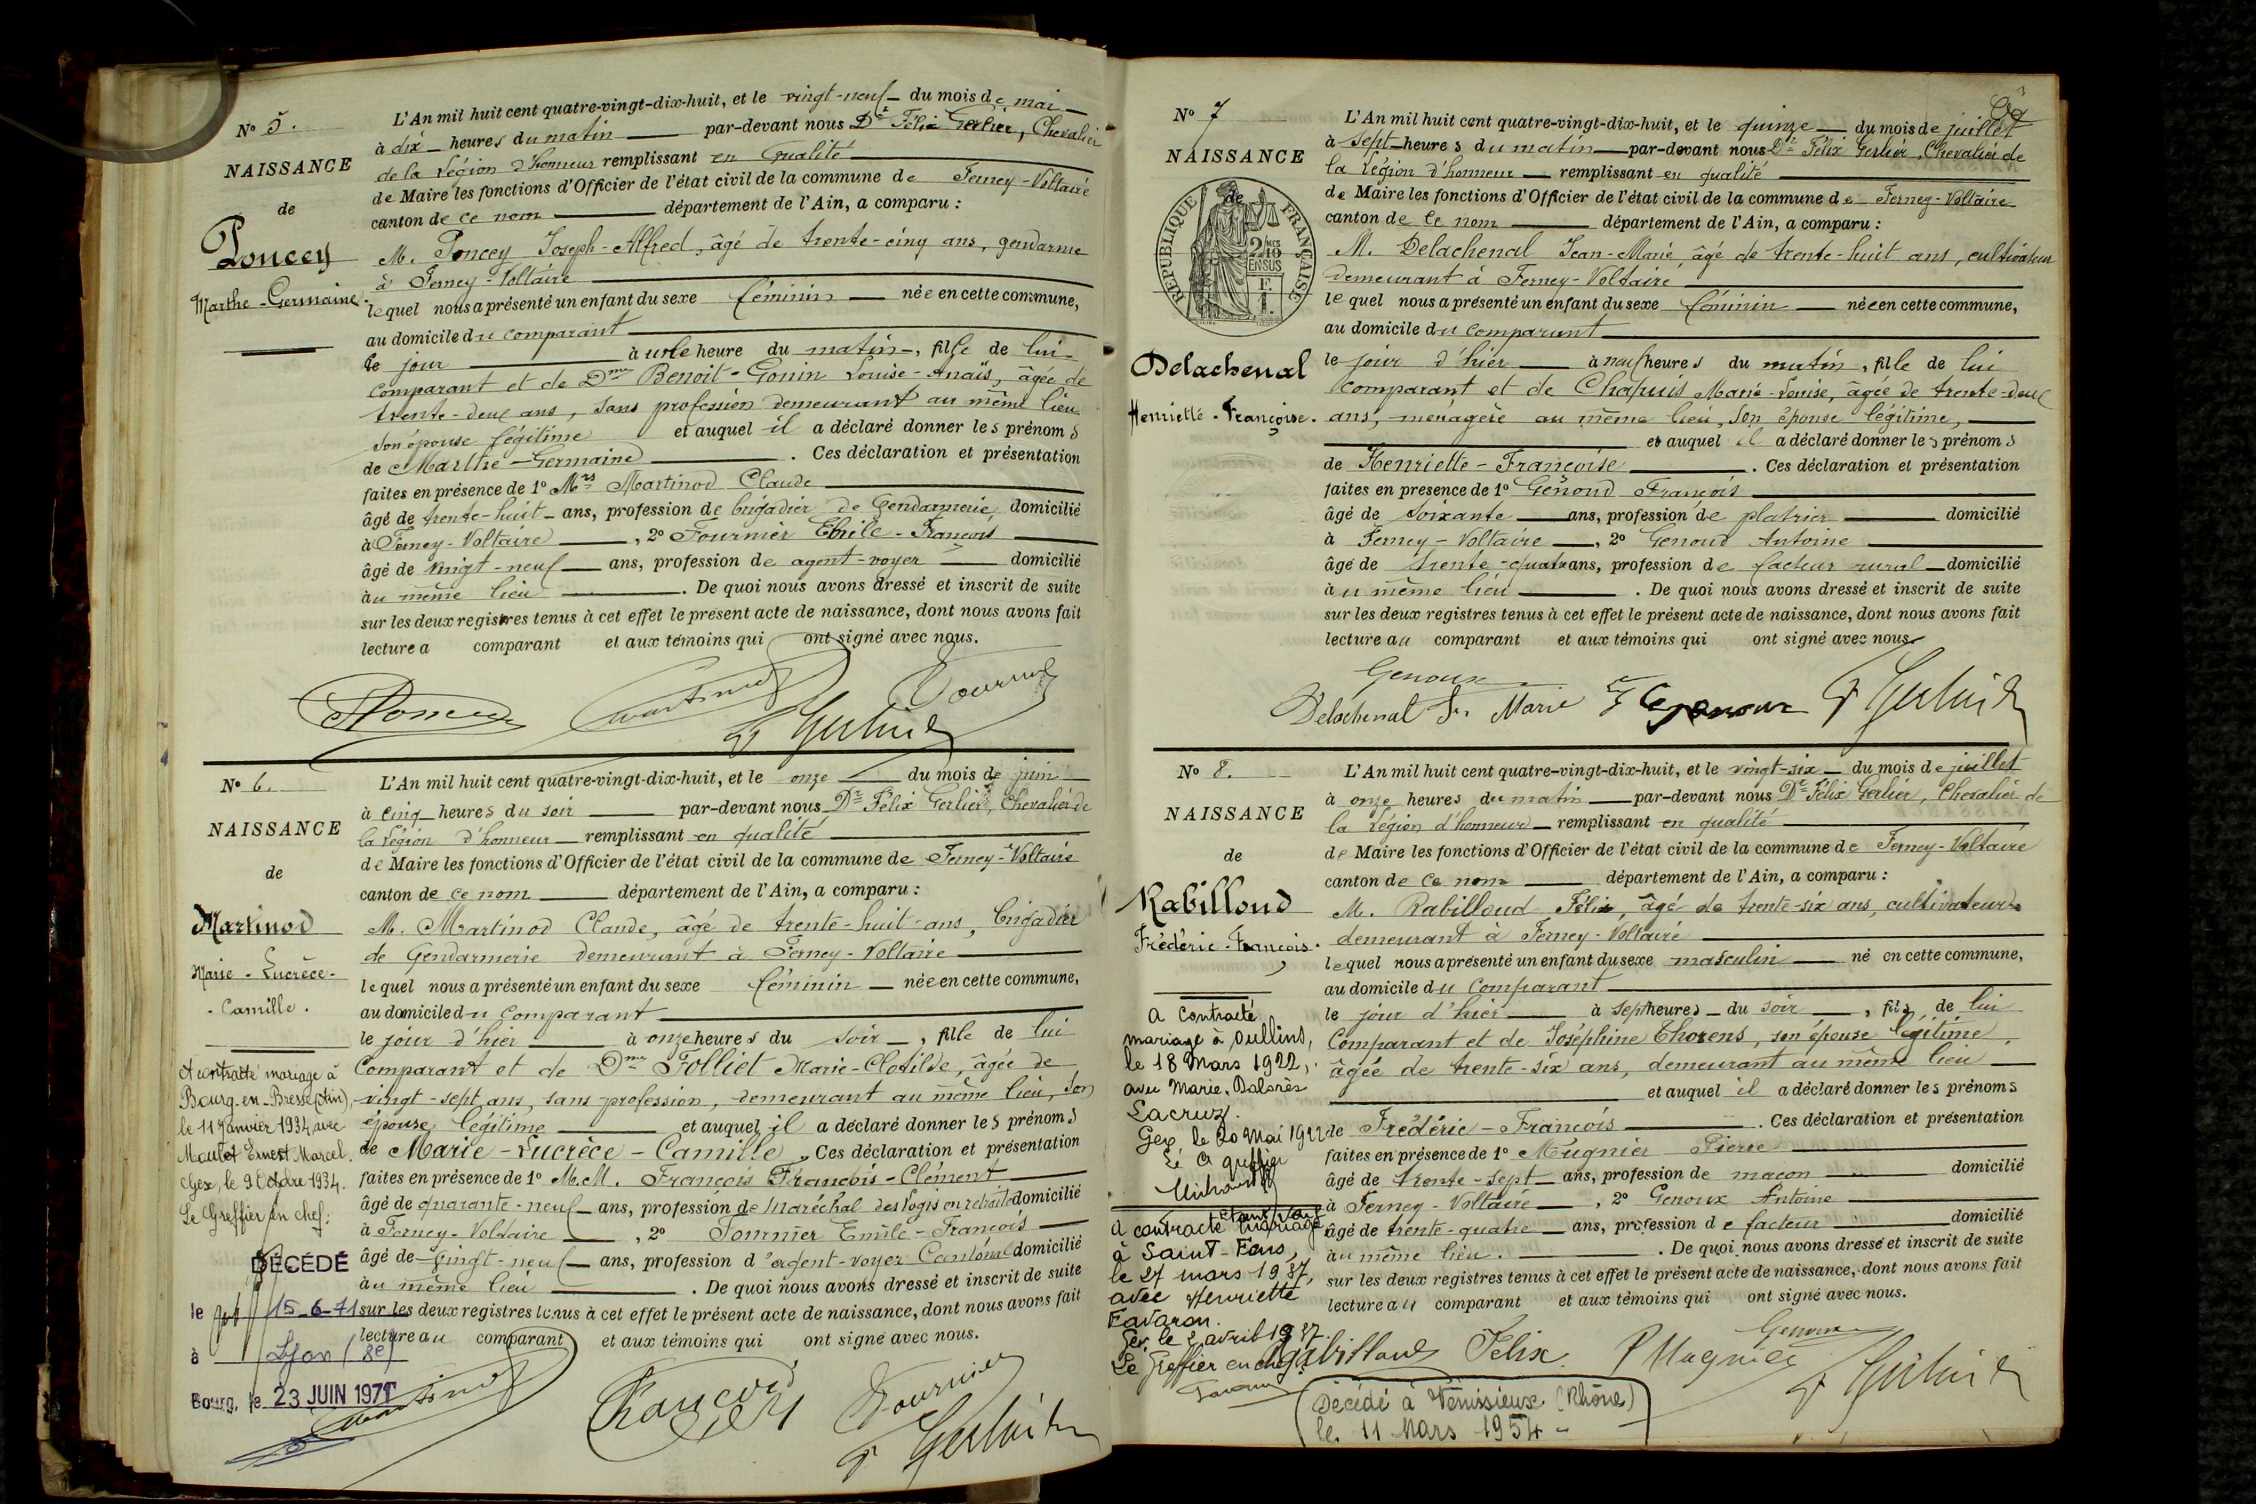 N° 5.
NAISSANCE
de
Poncey
Marthe-Germaine.
L'An mil huit cent quatre-vingt-dix-huit, et le vingt-neuf du mois de mai
à dix heures du matin par-devant nous Dr Félix Gerlier, Chevalier
de la Légion d'honneur remplissant en qualité
de Maire les fonctions d'Officier de l'état civil de la commune de Ferney-Voltaire
canton de ce nom département de l'Ain, a comparu :
M. Poncey Joseph-Alfred, âgé de trente-cinq ans, gendarme
à Ferney-Voltaire
lequel nous a présenté un enfant du sexe féminin née en cette commune,
au domicile du comparant
le jour à une heure du matin, fille de lui
comparant et de Dme Benoit-Gonin Louise-Anaïs, âgée de
trente-deux ans, sans profession demeurant au même lieu
son épouse légitime et auquel il a déclaré donner les prénoms
de Marthe-Germaine. Ces déclaration et présentation
faites en présence de 1° Mrs Martinod Claude
âgé de trente-huit ans, profession de brigadier de Gendarmerie domicilié
à Ferney-Voltaire, 2° Fournier Emile-François
âgé de vingt-neuf ans, profession de agent-voyer domicilié
au même lieu. De quoi nous avons dressé et inscrit de suite
sur les deux registres tenus à cet effet le présent acte de naissance, dont nous avons fait
lecture a comparant et aux témoins qui ont signé avec nous.
Poncey Martinod Fournier
F Gerlier
N° 6.
NAISSANCE
de
Martinod
Marie-Lucrèce-
-Camille.
A contracté mariage à
Bourg-en-Bresse (Ain),
le 11 Janvier 1934 avec
Maulet Ernest Marcel.
Gex, le 9 Octobre 1934.
Le Greffier en chef:
DÉCÉDÉ
le 15-6-71
à Lyon (8e)
Bourg, le 23 JUIN 1971
L'An mil huit cent quatre-vingt-dix-huit, et le onze du mois de juin
à cinq heures du soir par-devant nous Dr Félix Gerlier, Chevalier de
la Légion d'honneur remplissant en qualité
de Maire les fonctions d'Officier de l'état civil de la commune de Ferney-Voltaire
canton de ce nom département de l'Ain, a comparu :
M. Martinod Claude, âgé de trente-huit-ans, brigadier
de Gendarmerie demeurant à Ferney-Voltaire
lequel nous a présenté un enfant du sexe féminin née en cette commune,
au domicile du comparant
le jour d'hier à onze heures du soir, fille de lui
comparant et de Dme Folliet Marie-Clotilde, âgée de
vingt-sept ans, sans profession, demeurant au même lieu, son
épouse légitime et auquel il a déclaré donner les prénoms
de Marie-Lucrèce-Camille. Ces déclaration et présentation
faites en présence de 1° M.M. François François-Clément
âgé de quarante-neuf ans, profession de Maréchal des logis en retraite domicilié
à Ferney-Voltaire, 2° Fournier Emile-François
âgé de vingt-neuf ans, profession d'agent-voyer Cantonal domicilié
au même lieu. De quoi nous avons dressé et inscrit de suite
sur les deux registres tenus à cet effet le présent acte de naissance, dont nous avons fait
lecture au comparant et aux témoins qui ont signé avec nous.
Martinod François Fournier
F Gerlier
N° 7
NAISSANCE
de
RÉPUBLIQUE FRANÇAISE
Delachenal
Henriette-Françoise.
L'An mil huit cent quatre-vingt-dix-huit, et le quinze du mois de juillet
à sept heures du matin par-devant nous Dr Félix Gerlier, Chevalier de
la Légion d'honneur remplissant en qualité
de Maire les fonctions d'Officier de l'état civil de la commune de Ferney-Voltaire
canton de ce nom département de l'Ain, a comparu :
M. Delachenal Jean-Marie, âgé de trente-huit ans, cultivateur
demeurant à Ferney-Voltaire
lequel nous a présenté un enfant du sexe féminin née en cette commune,
au domicile du comparant
le jour d'hier à neuf heures du matin, fille de lui
comparant et de Chapuis Marie-Louise, âgée de trente-deux
ans, ménagère au même lieu, son épouse légitime,
et auquel il a déclaré donner les prénoms
de Henriette-Françoise. Ces déclaration et présentation
faites en présence de 1° Genoud François
âgé de soixante ans, profession de platrier domicilié
à Ferney-Voltaire, 2° Genoud Antoine
âgé de trente-quatre ans, profession de facteur rural domicilié
au même lieu. De quoi nous avons dressé et inscrit de suite
sur les deux registres tenus à cet effet le présent acte de naissance, dont nous avons fait
lecture au comparant et aux témoins qui ont signé avec nous
Genoux
Delachenal Jn Marie Genoux F Gerlier
N° 8.
NAISSANCE
de
Rabilloud
Frédéric-François.
A contracté
mariage à Oullins,
le 18 Mars 1922,
avec Marie, Dolorès
Lacruz.
Gex, le 20 Mai 1922
Le greffier
A contracté mariage
à Saint-Fons,
le 27 mars 1937,
avec Henriette
Favaron.
Gex le 2 avril 1937.
Le Greffier en chef
L'An mil huit cent quatre-vingt-dix-huit, et le vingt-six du mois de juillet
à onze heures du matin par-devant nous Dr Félix Gerlier, Chevalier de
la Légion d'honneur remplissant en qualité
de Maire les fonctions d'Officier de l'état civil de la commune de Ferney-Voltaire
canton de ce nom département de l'Ain, a comparu :
M. Rabilloud Félix, âgé de trente-six ans, cultivateur
demeurant à Ferney-Voltaire
lequel nous a présenté un enfant du sexe masculin né en cette commune,
au domicile du comparant
le jour d'hier à sept heures du soir, fils de lui
comparant et de Joséphine Thorens, son épouse légitime,
âgée de trente-six ans, demeurant au même lieu
et auquel il a déclaré donner les prénoms
de Frédéric-François. Ces déclaration et présentation
faites en présence de 1° Mugnier Pierre
âgé de trente-sept ans, profession de maçon domicilié
à Ferney-Voltaire, 2° Genoux Antoine
âgé de trente-quatre ans, profession de facteur domicilié
au même lieu. De quoi nous avons dressé et inscrit de suite
sur les deux registres tenus à cet effet le présent acte de naissance, dont nous avons fait
lecture au comparant et aux témoins qui ont signé avec nous.
Rabilloud Félix P Mugnier Genoux
F Gerlier
Décédé à Vénissieux (Rhône)
le 11 Mars 1954 -